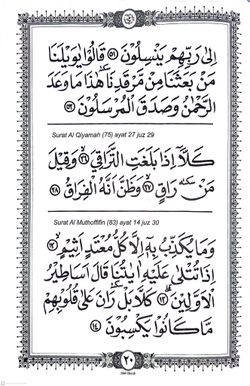 إِلَىٰ رَبِّهِمْ يَنسِلُونَ ۝٥١ قَالُوا۟ يَـٰوَيْلَنَا
مَنۢ بَعَثَنَا مِن مَّرْقَدِنَا ۜ هَـٰذَا مَا وَعَدَ
ٱلرَّحْمَـٰنُ وَصَدَقَ ٱلْمُرْسَلُونَ ۝٥٢
Surat Al Qiyamah (75) ayat 27 juz 29
كَلَّآ إِذَا بَلَغَتِ ٱلتَّرَاقِيَ ۝٢٦ وَقِيلَ
مَنْ ۜ رَاقٍ ۝٢٧ وَظَنَّ أَنَّهُ ٱلْفِرَاقُ ۝٢٨
Surat Al Muthoffifin (83) ayat 14 juz 30
وَمَا يُكَذِّبُ بِهِۦٓ إِلَّا كُلُّ مُعْتَدٍ أَثِيمٍ ۝١٢
إِذَا تُتْلَىٰ عَلَيْهِ ءَايَـٰتُنَا قَالَ أَسَـٰطِيرُ
ٱلْأَوَّلِينَ ۝١٣ كَلَّا ۖ بَلْ ۜ رَانَ عَلَىٰ قُلُوبِهِم
مَّا كَانُوا۟ يَكْسِبُونَ ۝١٤
٢٠